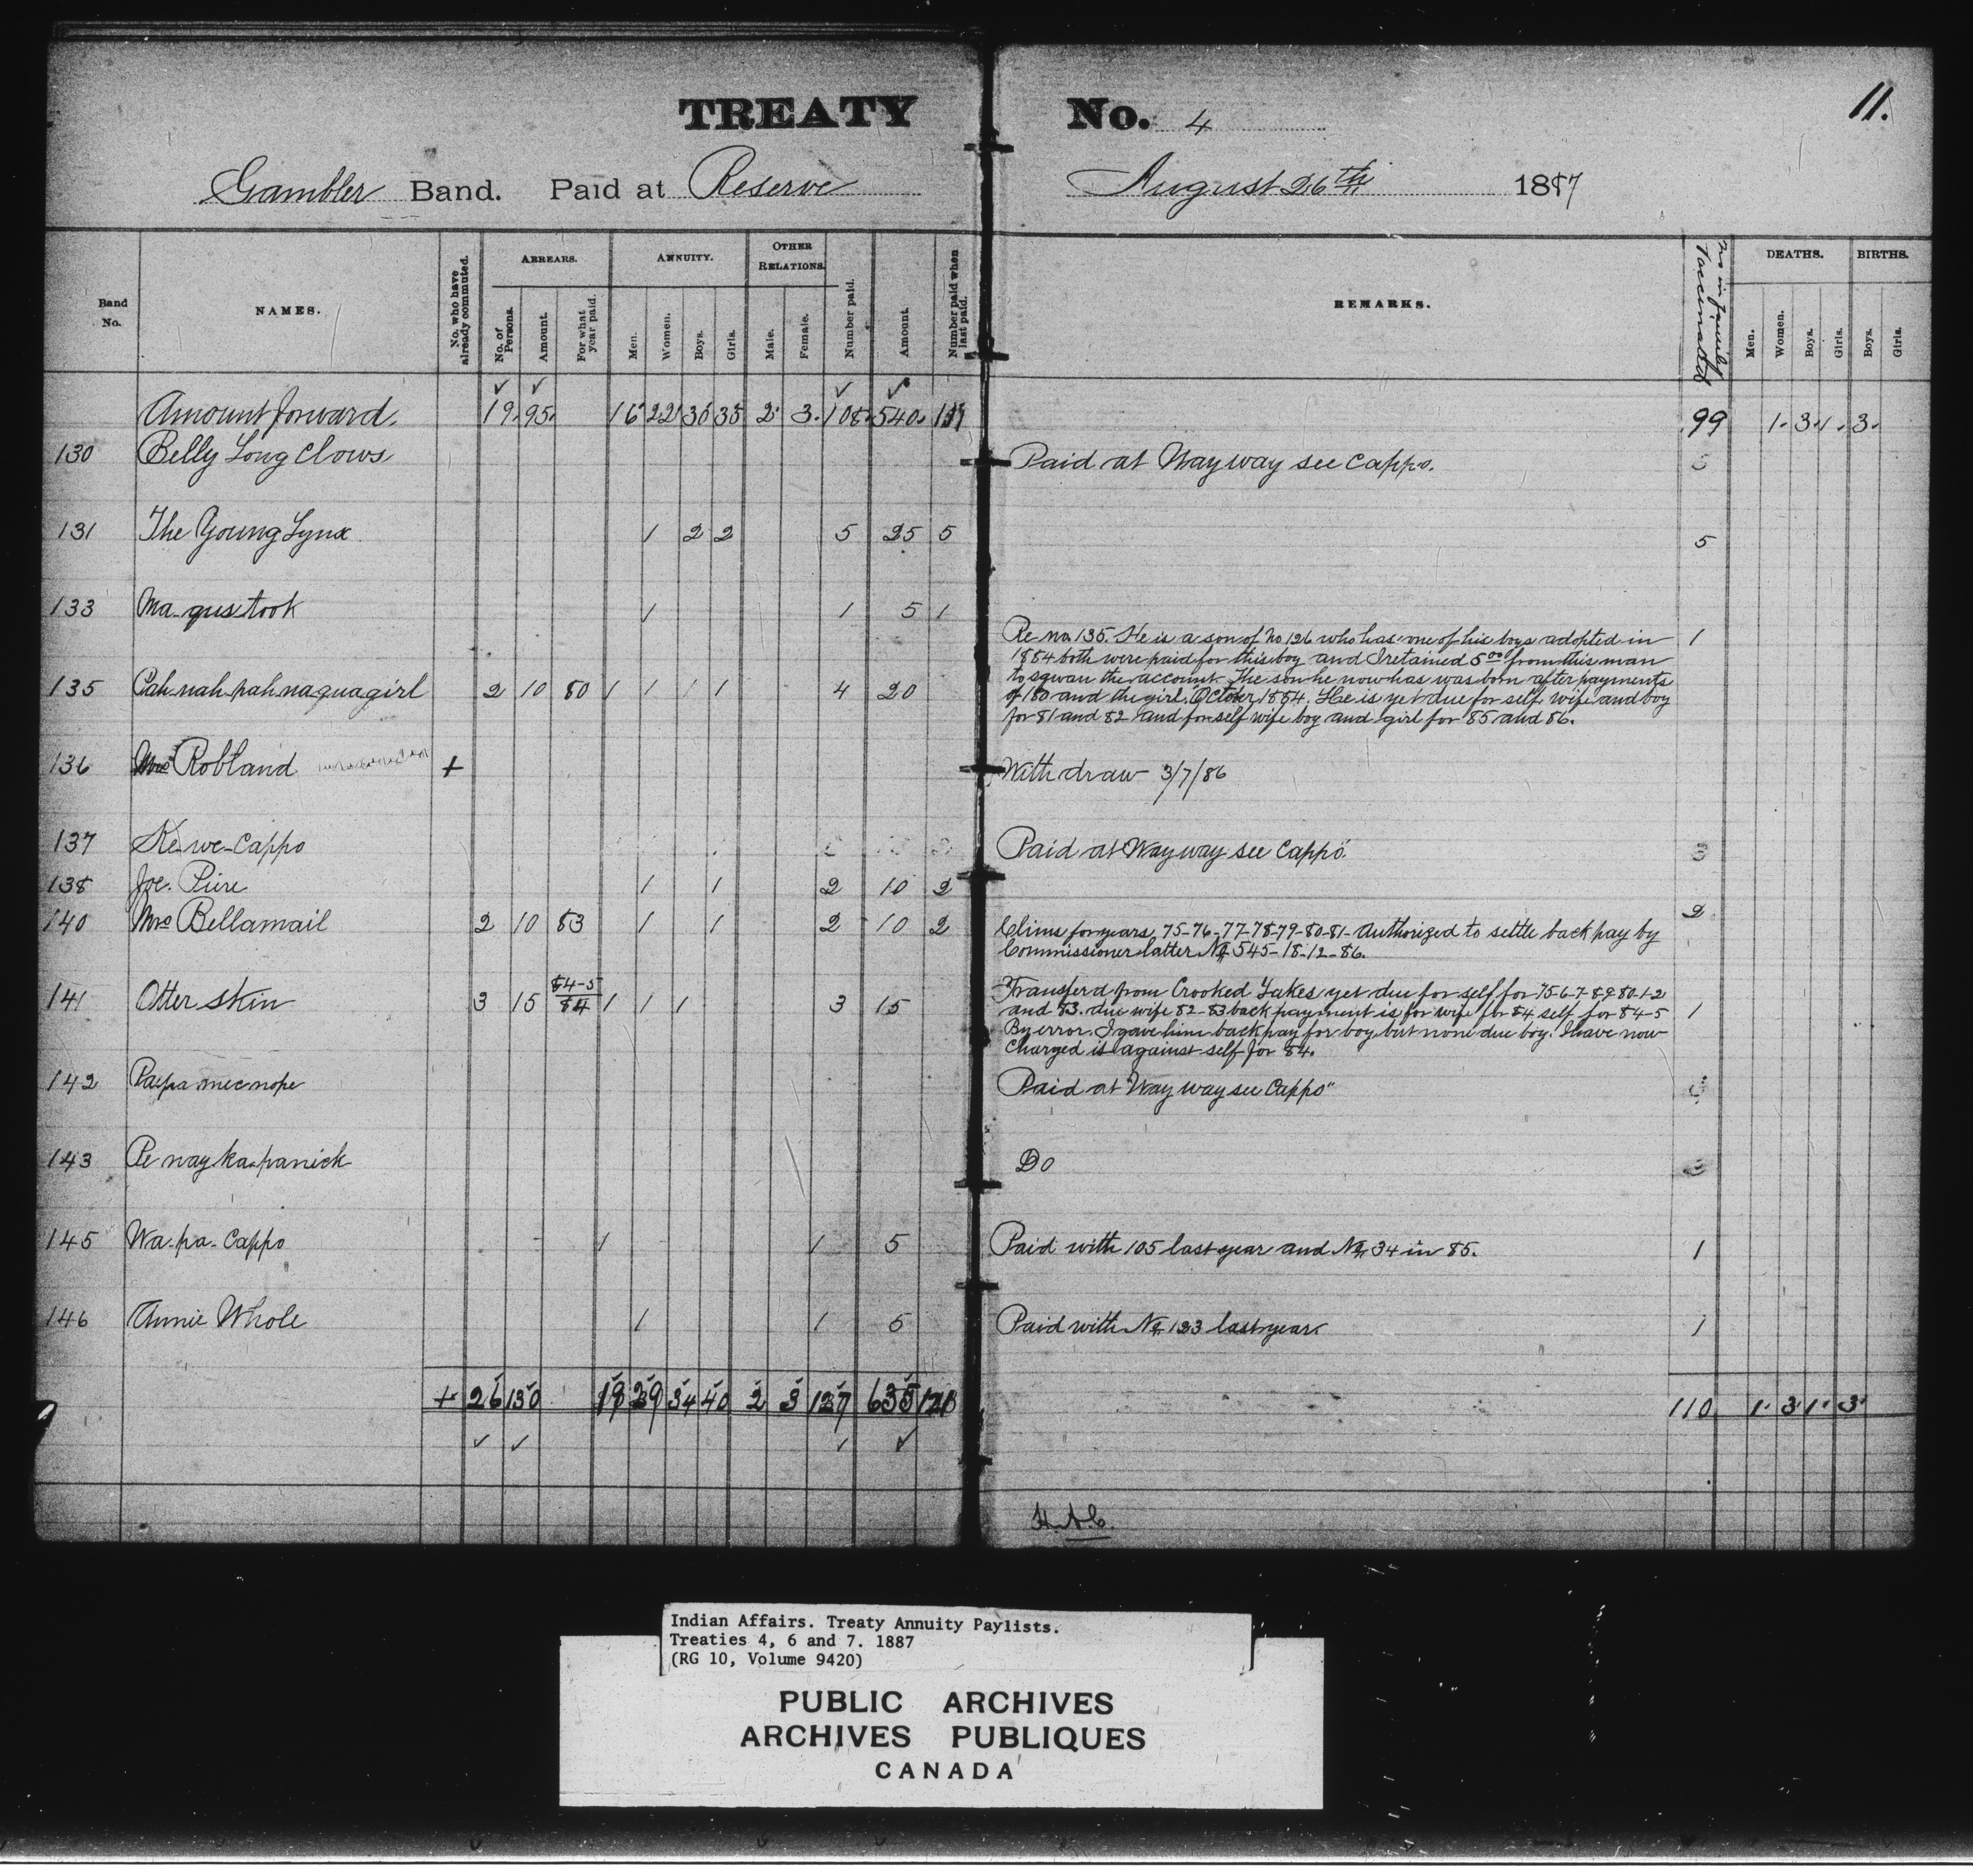 TREATY No. 4
11.
Gambler Band. Paid at Reserve August 26th 1887
Band No.
NAMES.
No. who have already commuted.
ARREARS.
No. of Persons.
Amount.
For what year paid.
ANNUITY.
Men.
Women.
Boys.
Girls.
OTHER RELATIONS.
Male.
Female.
Number paid.
Amount.
Number paid when last paid.
REMARKS.
No in family Vaccinated
DEATHS.
Men.
Women.
Boys.
Girls.
BIRTHS.
Boys.
Girls.
Amount forward. 19. 95. 16 22 35 2 3. 108. 540. 99 1. 3. 1. 3.
130 Belly Long Claws Paid at Wayway see Cappo.
131 The Young Lynx 1 2 2 5 25 5 5
133 Ma-qus took 1 1 5 1 1
135 Cah-nah-pah-naquagirl 2 10 80 1 1 1 1 4 20
Re no. 135. He is a son of No 126 who has one of his boys adopted in
1884 both were paid for this boy and I retained 5.00 from this man
to sqwan the account. The son he now has was born after payments
of 80 and the girl. October, 1884. He is yet due for self, wife and boy
for 81 and 82 and for self wife boy and girl for 85 and 86.
136 Robland + With draw 3/7/86
137 Ke-we-Cappo Paid at Wayway see Cappo. 3
138 Joe. Pure 1 1 2 10 2 2
140 Mrs Bellamail 2 10 83 1 1 2 10 2
Clims for years, 75-76-77-78-79-80-81- Authorized to settle back pay by
Commissioner latter No 545-18-12-86.
141 Otter skin 3 15 84-5 84 1 1 1 3 15 1
Transferd from Crooked Lakes yet due for self for 75-6-7-8-9-80-1-2
and 83. due wife 82-83 back payment is for wife for 84 self for 84-5
By error. I gave him back pay for boy but none due boy. I have now
Charged it against self for 84.
142 Paepa mee nope Paid at Wayway see Cappo"
143 Pe nay ka-panick Do
145 Wa-pa-Cappo 1 1 5 Paid with 105 last year and No 34 in 85. 1
146 Annie Whole 1 1 5 Paid with No 123 last year. 1
+ 26 130 19 29 34 40 2 3 127 635 110 1. 3 1. 3.
H.A.C.
Indian Affairs. Treaty Annuity Paylists.
Treaties 4, 6 and 7. 1887
(RG 10, Volume 9420)
PUBLIC ARCHIVES
ARCHIVES PUBLIQUES
CANADA